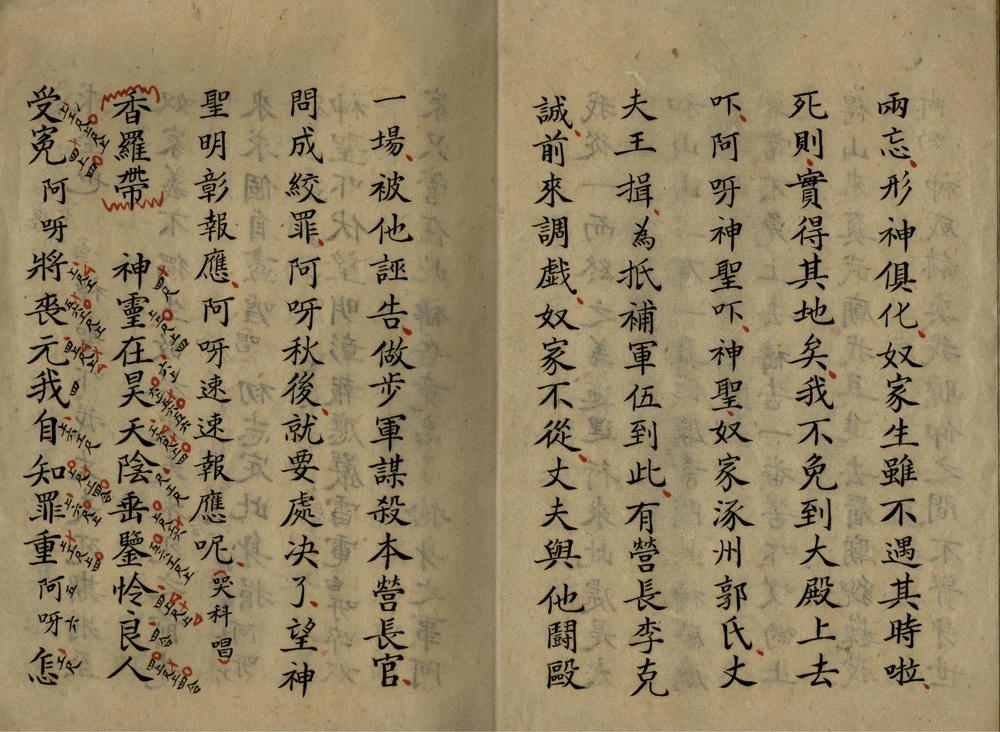 兩忘形神俱化奴家生雖不遇其時啦
死則實得其地矣我不免到大殿上去
吓阿呀神聖吓神聖奴家涿州郭氏丈
夫王揖為抵補軍伍到此有營長李克
誠前來調戲奴家不從丈夫與他鬪毆
一場被他誣告做步軍謀殺本營長官
問成絞罪阿呀秋後就要處决了望神
聖明彰報應阿呀速速報應呢哭科唱
香羅帶 神靈在昊天陰垂鑒怜良人
受冤阿呀將喪元我自知罪重阿呀怎